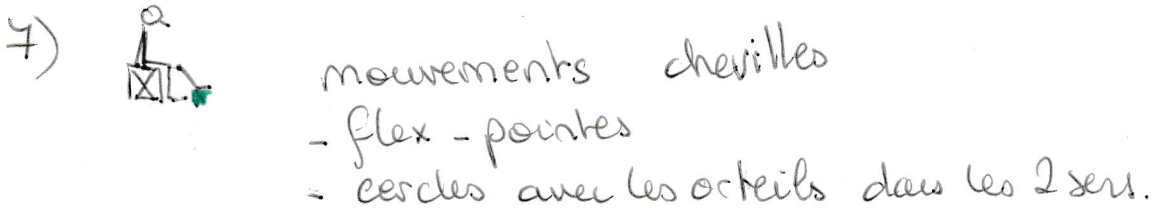 7)
mouvements chevilles
- flex - pointes
- cercles avec les orteils dans les 2 sens.